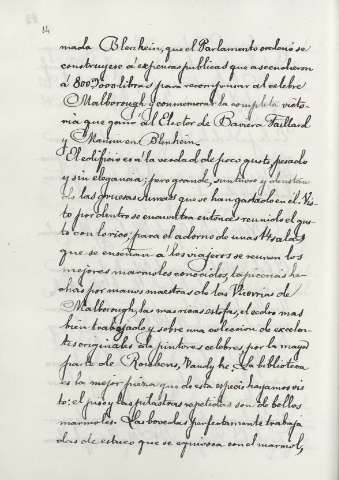 14
mada Blenhein, que el Parlamento ordenó se
construyese á expensas publicas que ascendieron
á 800,000 libras para recompensar al celebre
Malborough y conmemorar la completa victo-
ria que ganó al Elector de Baviera Taillard
y Marsin en Blenhein.
El edificio es á la verdad de poco gusto pesado
y sin elegancia; pero grande, suntuoso y denotan
do las gruesas sumas que se han gastado en él. Vis
to por dentro se encuentra entonces reunido el gus
to con lo rico; para el adorno de unas 14 salas
que se enseñan á los viajeros se reunen los
mejores marmoles conocidos, tapicerias he-
chas por manos maestras de las Victorias de
Malborough, las mas ricas estofas, el cedro mas
bien trabajado y sobre una coleccion de excelen-
tes originales de pintores celebres por la mayor
parte de Roubens, Vandyke. La biblioteca
es la mejor pieza que de esta especie hayamos vis
to: el piso y las pilastras repetidas son de bellos
marmoles. Las bovedas perfectamente trabaja
das de estuco que se equivoca con el marmol,